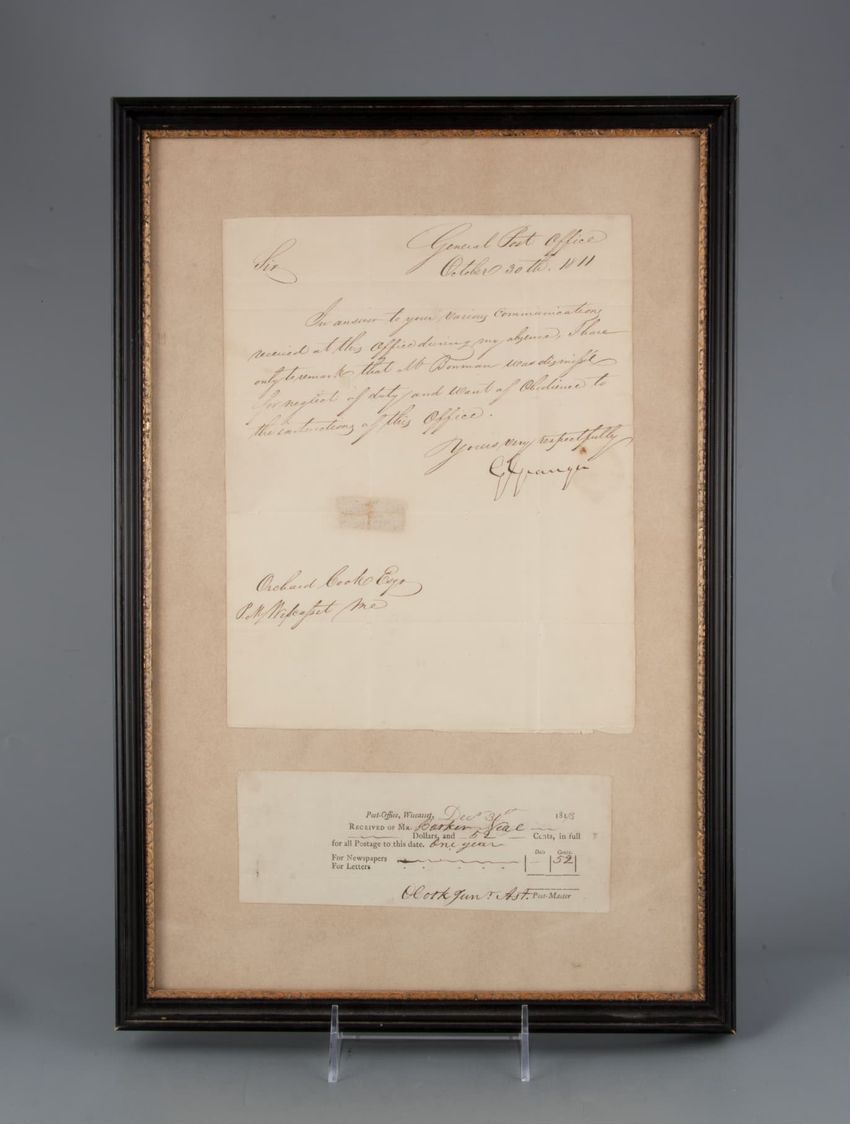 General Post Office
October 30th. 1811
Sir
In answer to your various communications
received at this Office during my absence, I have
only to remark that Mr Bowman was dismisst
for neglect of duty and want of Obedience to
the instructions of this Office.
Yours, very respectfully
G Granger
Orchard Cook Esqr
P. M. Wiscasset Me
Post-Office, Wiscasset, Decr 31st 181
RECEIVED OF MR. Neal
Dollars, and 52 Cents, in full
for all Postage to this date. One year
Dols Cents.
For Newspapers 52
For Letters
O Cook Junr Ast. Post-Master